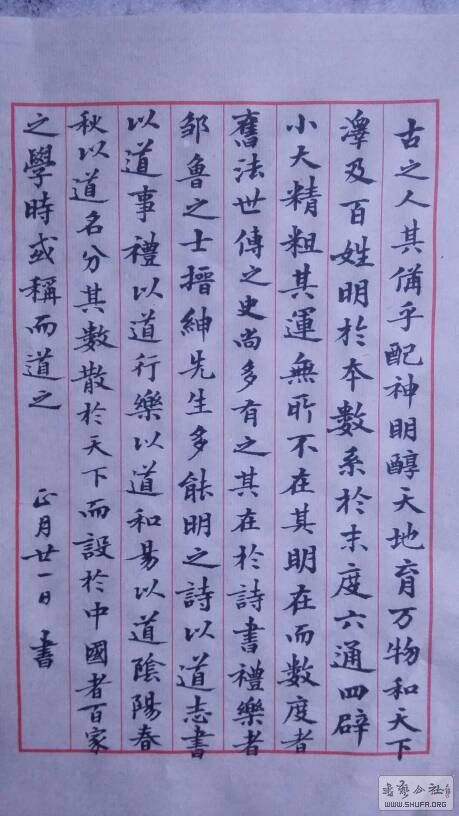 古之人其俻乎配神明醇天地育万物和天下
澤及百姓明於本數系於末度六通四辟
小大精粗其運無所不在其明在而数度者
舊法世傳之史尚多有之其在於詩書禮樂者
邹魯之士搢紳先生多能明之詩以道志書
以道事禮以道行樂以道和易以道陰陽春
秋以道名分其數散於天下而設於中國者百家
之學時或稱而道之 正月廿一日 書
书法公社
WWW.SHUFA.ORG